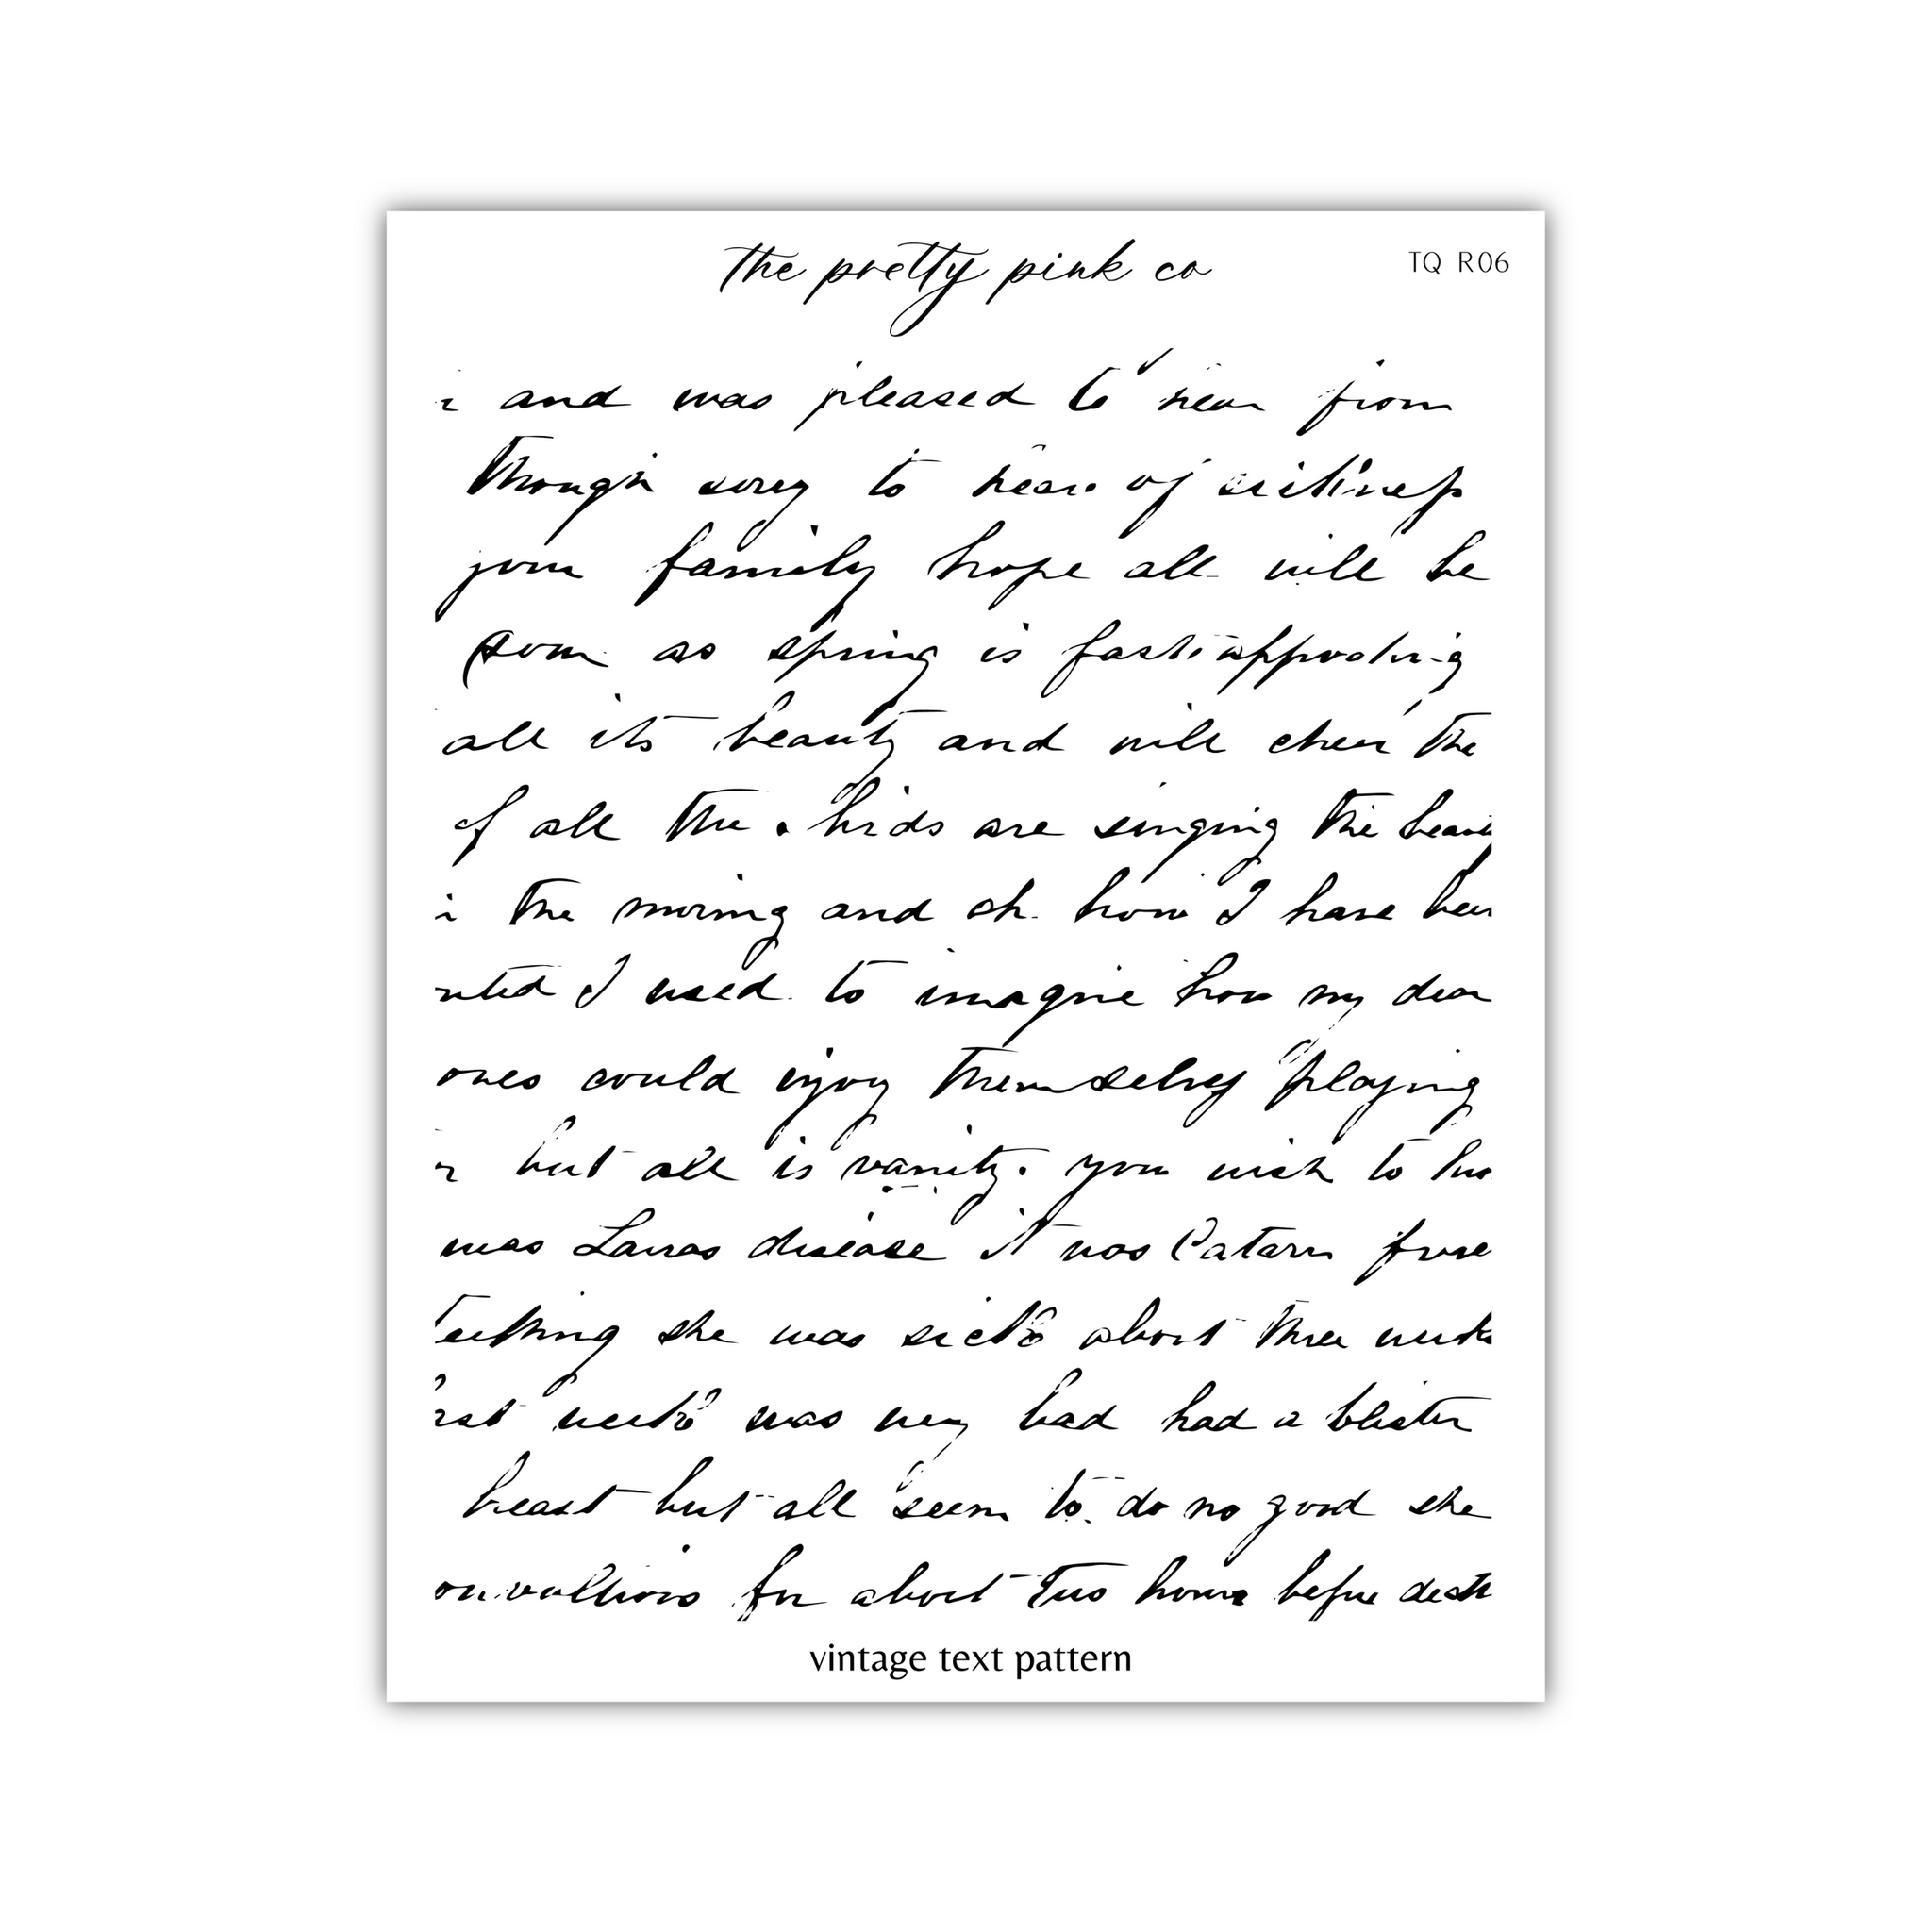 the pretty pink co
TQ R06
and was pleased to hear from
though sorry to hear of sickness
your family hope all will be
soon as spring is fast approching
all its beauty and will cheer the
of all the birds are singing the
the morning and oh how I have been
I used to imagine how my dear
ones could enjoy themselves playing
but all is vanity. you wish to
was Lauras disease it was Catarrh
teething she was sick about three weeks
week was very bad had a blister
breast but all seem to do no good she
for about two hours before death
vintage text pattern